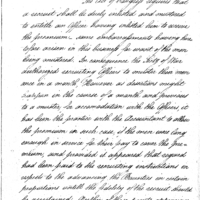 The Act of Congress requires that
a recruit shall be duly enlisted and mustered
to entitle an Officer having enlisted him to receive
the premium, some embarrassments having here-
tofore arisen in this branch for want of the men
being mustered. In consequence the Secty of War
authorized recruiting Officers to muster their men
once in a month. However as desertions might
happen in the course of a month, and previous
to a muster, to accomodation with the Officers, it
has been the practice with the Accountant to allow
the premium in such case, if the men was long
enough in service for their pay to cover the pre-
mium, and provided it appeared that regard
had been paid to the recruiting instructions in
respect to the advancing the Bounties in certain
proportions untill the fidelity of the recruit should
be ascertained.